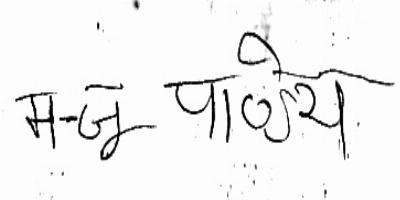 मन्जू पाण्डेय